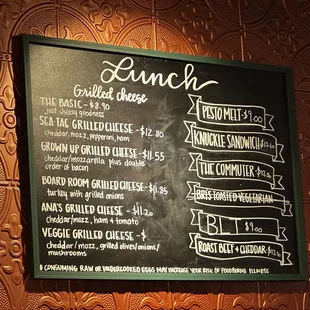 Lunch
Grilled cheese
THE BASIC - $8.90
Just cheesy goodness
SEA-TAC GRILLED CHEESE - $12.80
cheddar, mozz, pepperoni, ham
GROWN UP GRILLED CHEESE - $11.55
cheddar/mozzarella plus double
order of bacon
BOARD ROOM GRILLED CHEESE -
turkey with grilled onions
ANA'S GRILLED CHEESE - $11.20
cheddar/mozz, ham + tomato
VEGGIE GRILLED CHEESE - $
cheddar/mozz, grilled olives/onions/
mushrooms
PESTO MELT - $9.00
KNUCKLE SANDWICH
THE COMMUTER
BRIS TOASTED VEGETARIAN
BLT $9.00
ROAST BEEF + CHEDDAR
CONSUMING RAW OR UNDERCOOKED EGGS MAY INCREASE YOUR RISK OF FOODBORNE ILLNESS